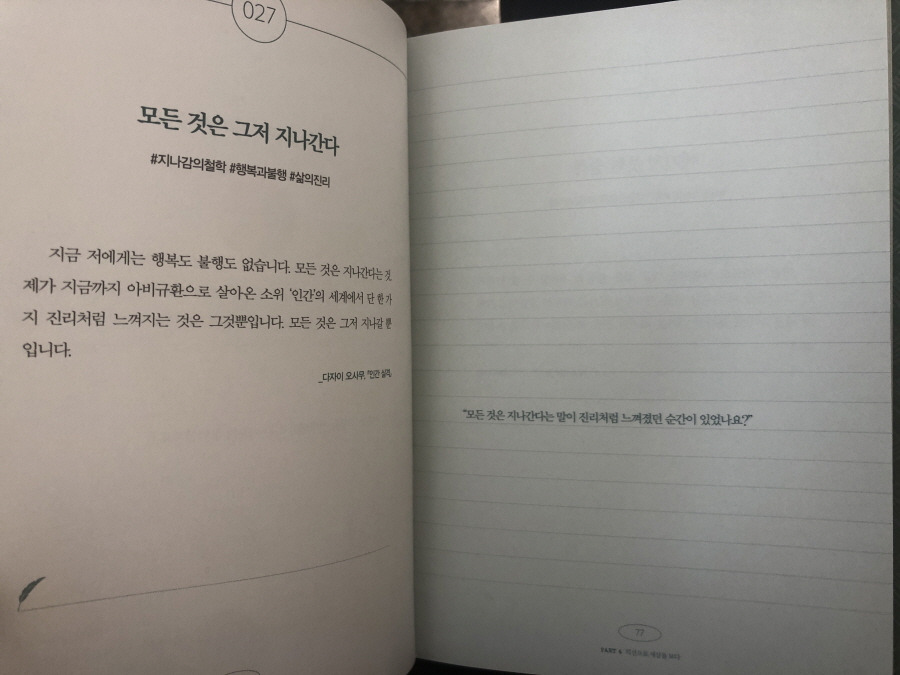 027
모든 것은 그저 지나간다
#지나감의철학 #행복과불행 #삶의진리
지금 저에게는 행복도 불행도 없습니다. 모든 것은 지나간다는 것.
제가 지금까지 아비규환으로 살아온 소위 '인간'의 세계에서 단 한 가
지 진리처럼 느껴지는 것은 그것뿐입니다. 모든 것은 그저 지나갈 뿐
입니다.
_다자이 오사무, 『인간 실격』
"모든 것은 지나간다는 말이 진리처럼 느껴졌던 순간이 있었나요?"
77
PART 4 세상을 보다